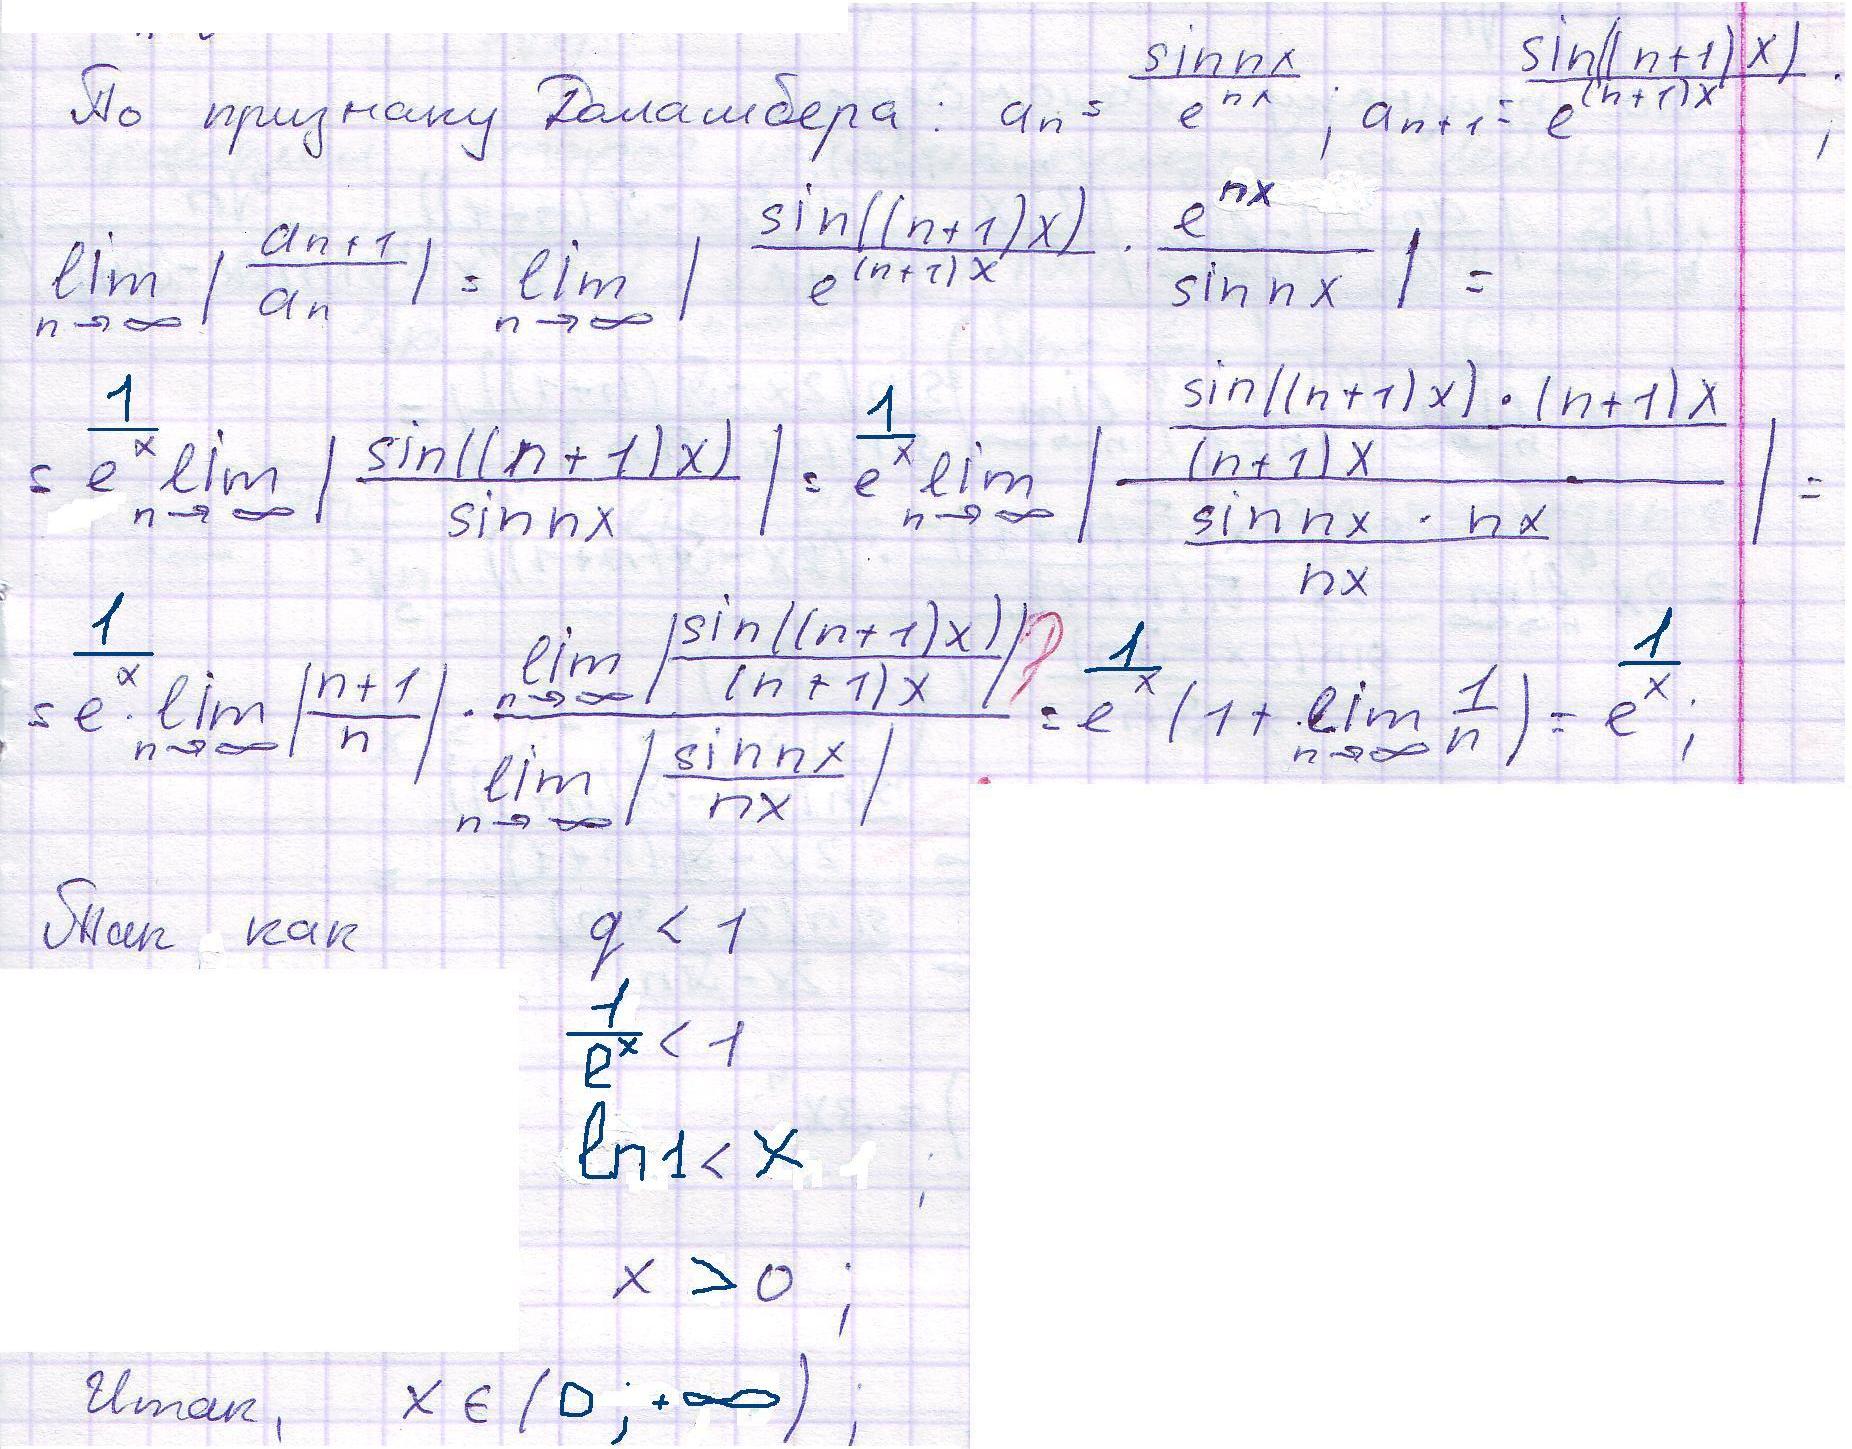 По признаку Даламбера: aₙ = sin nx / e^(nx) ; aₙ₊₁ = sin((n+1)x) / e^((n+1)x) ;
lim n→∞ | aₙ₊₁ / aₙ | = lim n→∞ | sin((n+1)x) / e^((n+1)x) · e^(nx) / sin nx | =
= 1/e^x lim n→∞ | sin((n+1)x) / sin nx | = 1/e^x lim n→∞ | (sin((n+1)x) · (n+1)x / (n+1)x) / (sin nx · nx / nx) | =
= 1/e^x · lim n→∞ | (n+1)/n | · lim n→∞ | sin((n+1)x) / (n+1)x | / lim n→∞ | sin nx / nx | ? = 1/e^x (1 + lim n→∞ 1/n) = 1/e^x ;
Так как q < 1
1/e^x < 1
ln 1 < x
x > 0 ;
Итак, x ∈ (0 ; +∞) ;